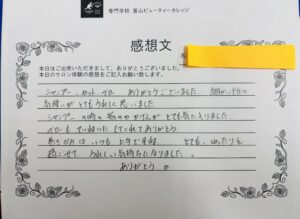 専門学校 富山ビューティーカレッジ
感想文
本日はご出席いただきまして、ありがとうございました。
本日のサロン体験の感想をご記入お願い致します。
シャンプー、カット、ブロー ありがとうございました
気使いがとてもうれしく思いました
シャンプーの時の がとても気に入りました
していてくれてありがとう
いつも 上手ですね とても、ゆったりと
過ごせて、うれしい気持ちになりました。
ありがとう。